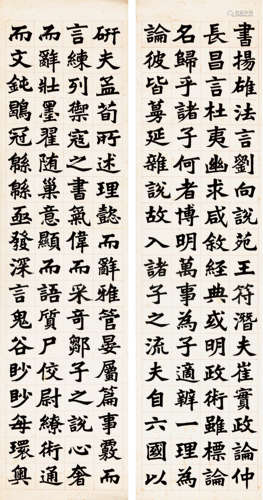 書揚雄法言劉向說苑王符潛夫崔實政論仲
長昌言杜夷幽求咸敘經典或明政術雖標論
名歸乎諸子何者博明萬事為子適辨一理為
論彼皆蔓延雜說故入諸子之流夫自六國以
研夫孟荀所述理懿而辭雅管晏屬篇事覈而
言練列禦寇之書氣偉而采奇鄒子之說心奢
而辭壯墨翟随巢意顯而語質尸佼尉繚術通
而文鈍鶡冠緜緜亟發深言鬼谷眇眇每環奧